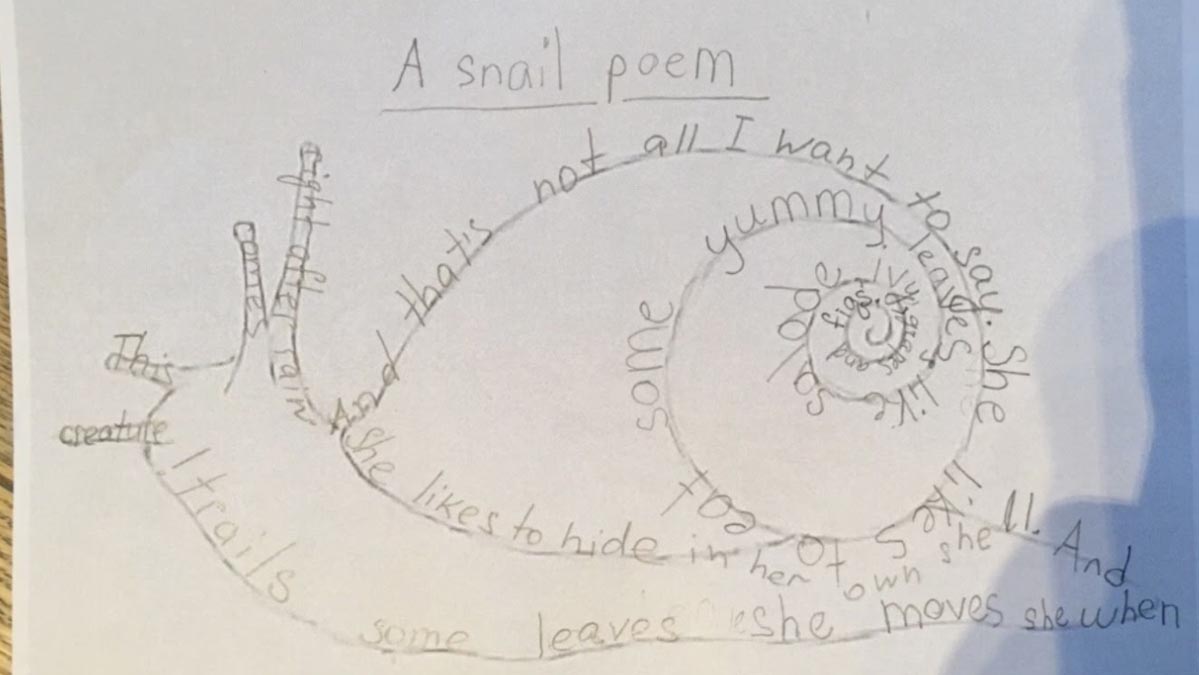 A snail poem
This creature
comes right after rain
And that's not all I want to say. She likes to eat some yummy leaves like ivy, grapes and figs.
she likes to hide in her own she ll. And
when she moves she leaves some trails!